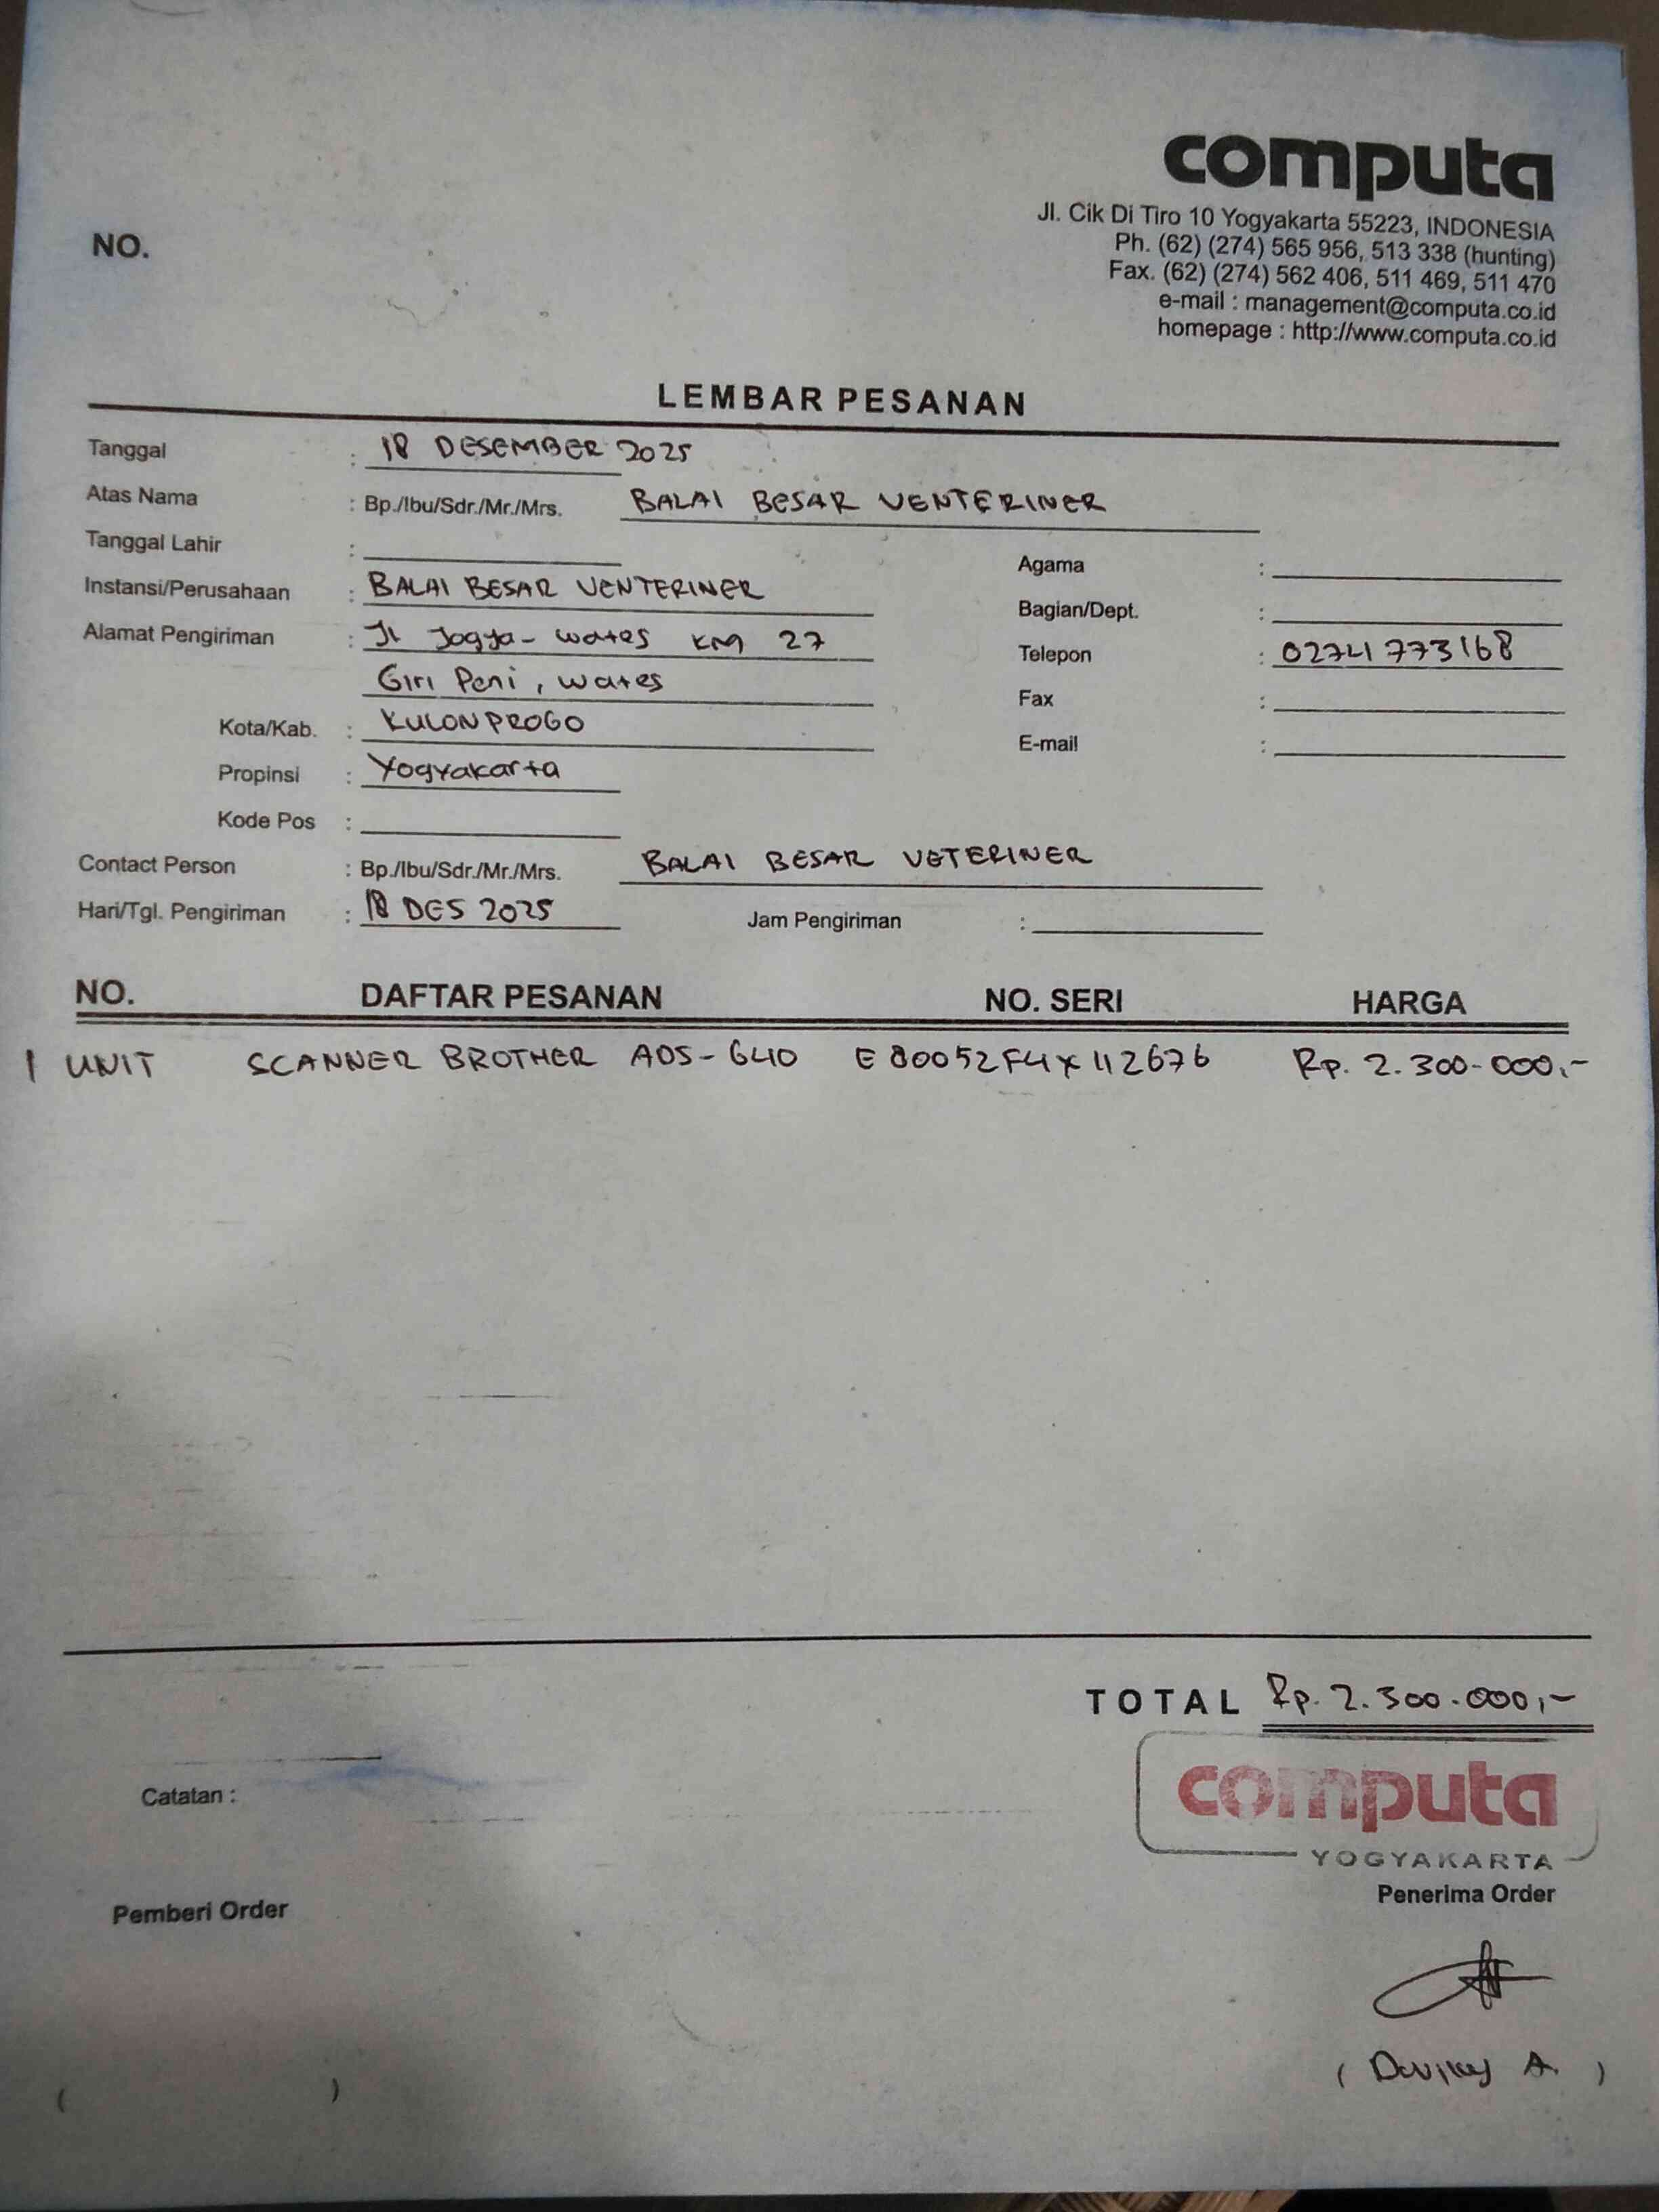 computa
Jl. Cik Di Tiro 10 Yogyakarta 55223, INDONESIA
Ph. (62) (274) 565 956, 513 338 (hunting)
Fax. (62) (274) 562 406, 511 469, 511 470
e-mail : management@computa.co.id
homepage : http://www.computa.co.id
NO.
LEMBAR PESANAN
Tanggal : 18 DESEMBER 2025
Atas Nama : Bp./Ibu/Sdr./Mr./Mrs. BALAI BESAR VENTERINER
Tanggal Lahir :
Agama :
Instansi/Perusahaan : BALAI BESAR VENTERINER
Bagian/Dept. :
Alamat Pengiriman : Jl Jogya - Wates KM 27
Telepon : 0274 773168
Giri Peni, Wates
Fax :
Kota/Kab. : KULONPROGO
E-mail :
Propinsi : Yogyakarta
Kode Pos :
Contact Person : Bp./Ibu/Sdr./Mr./Mrs. BALAI BESAR VETERINER
Hari/Tgl. Pengiriman : 18 DES 2025 Jam Pengiriman :
NO. DAFTAR PESANAN NO. SERI HARGA
1 UNIT SCANNER BROTHER ADS-640 E80052F4X112676 Rp. 2.300.000,-
TOTAL Rp. 2.300.000,-
computa
YOGYAKARTA
Catatan :
Pemberi Order
Penerima Order
( )
( A. )